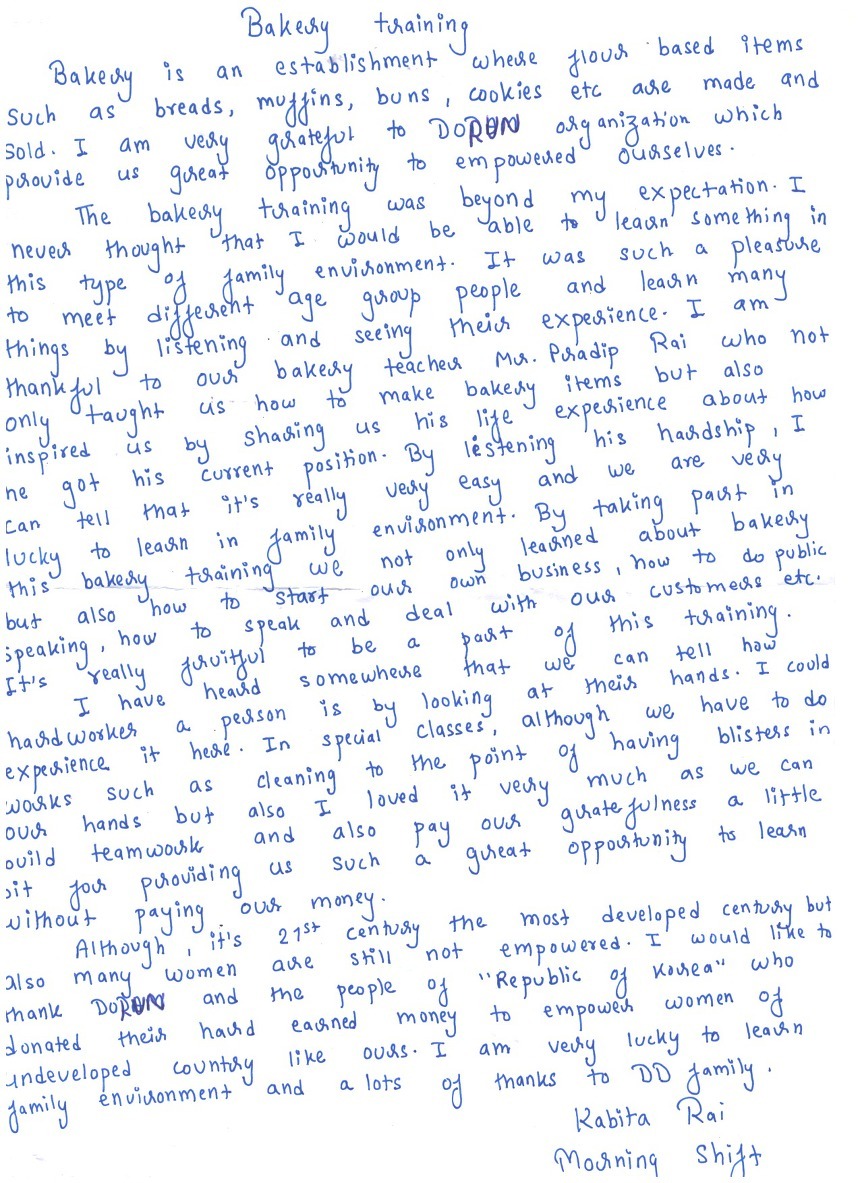 Bakery training
Bakery is an establishment where flour based items
such as breads, muffins, buns, cookies etc are made and
sold. I am very grateful to DORUN organization which
provide us great opportunity to empowered ourselves.
The bakery training was beyond my expectation. I
never thought that I would be able to learn something in
this type of family environment. It was such a pleasure
to meet different age group people and learn many
things by listening and seeing their experience. I am
thankful to our bakery teacher Mr. Pradip Rai who not
only taught us how to make bakery items but also
inspired us by sharing us his life experience about how
he got his current position. By listening his hardship, I
can tell that it's really very easy and we are very
lucky to learn in family environment. By taking part in
this bakery training we not only learned about bakery
but also how to start our own business, how to do public
speaking, how to speak and deal with our customers etc.
It's really fruitful to be a part of this training.
I have heard somewhere that we can tell how
hardworker a person is by looking at their hands. I could
experience it here. In special classes, although we have to do
works such as cleaning to the point of having blisters in
our hands but also I loved it very much as we can
build teamwork and also pay our gratefulness a little
bit for providing us such a great opportunity to learn
without paying our money.
Although, it's 21st century the most developed century but
also many women are still not empowered. I would like to
thank DORUN and the people of "Republic of Korea" who
donated their hard earned money to empower women of
undeveloped country like ours. I am very lucky to learn
family environment and a lots of thanks to DD family.
Kabita Rai
Morning Shift